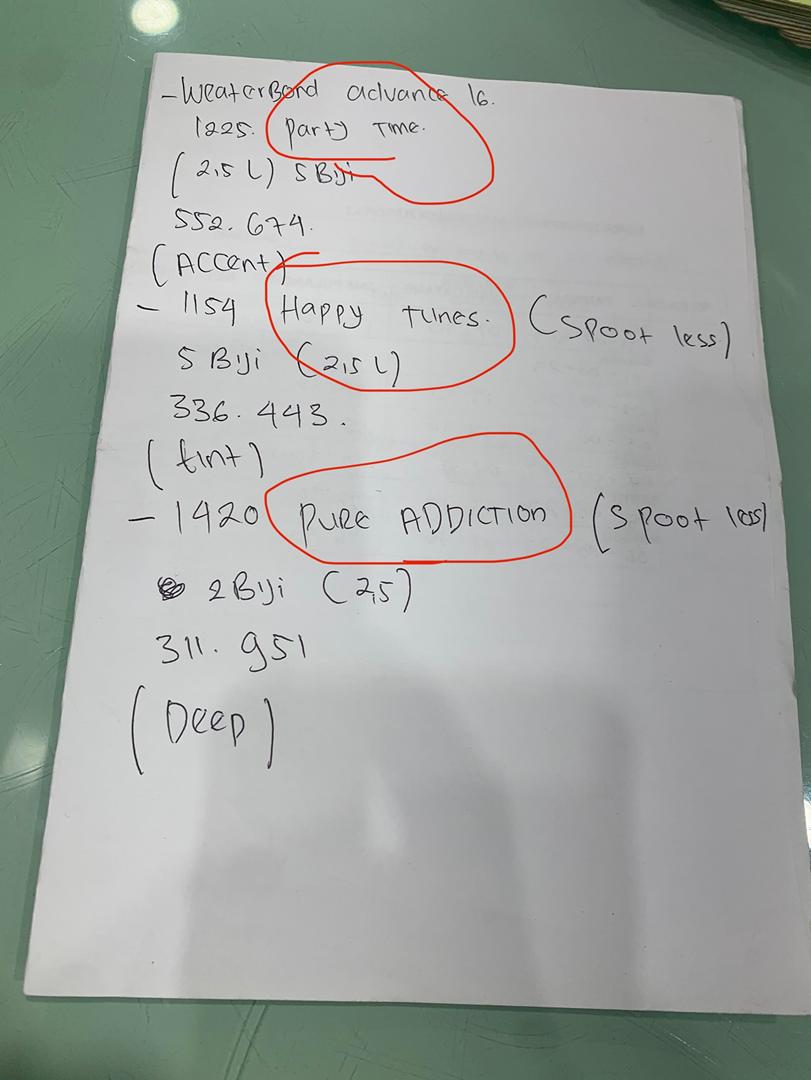 - WeaterBond advance 16.
1225. Party Time.
(2,5 L) 5 Biji
552.674.
(Accent)
- 1154 Happy Tunes. (Spoot less)
5 Biji (2,5 L)
336.443.
(tint)
- 1420 PURE ADDICTION (Spoot less)
2 Biji (2,5)
311.951
(Deep)